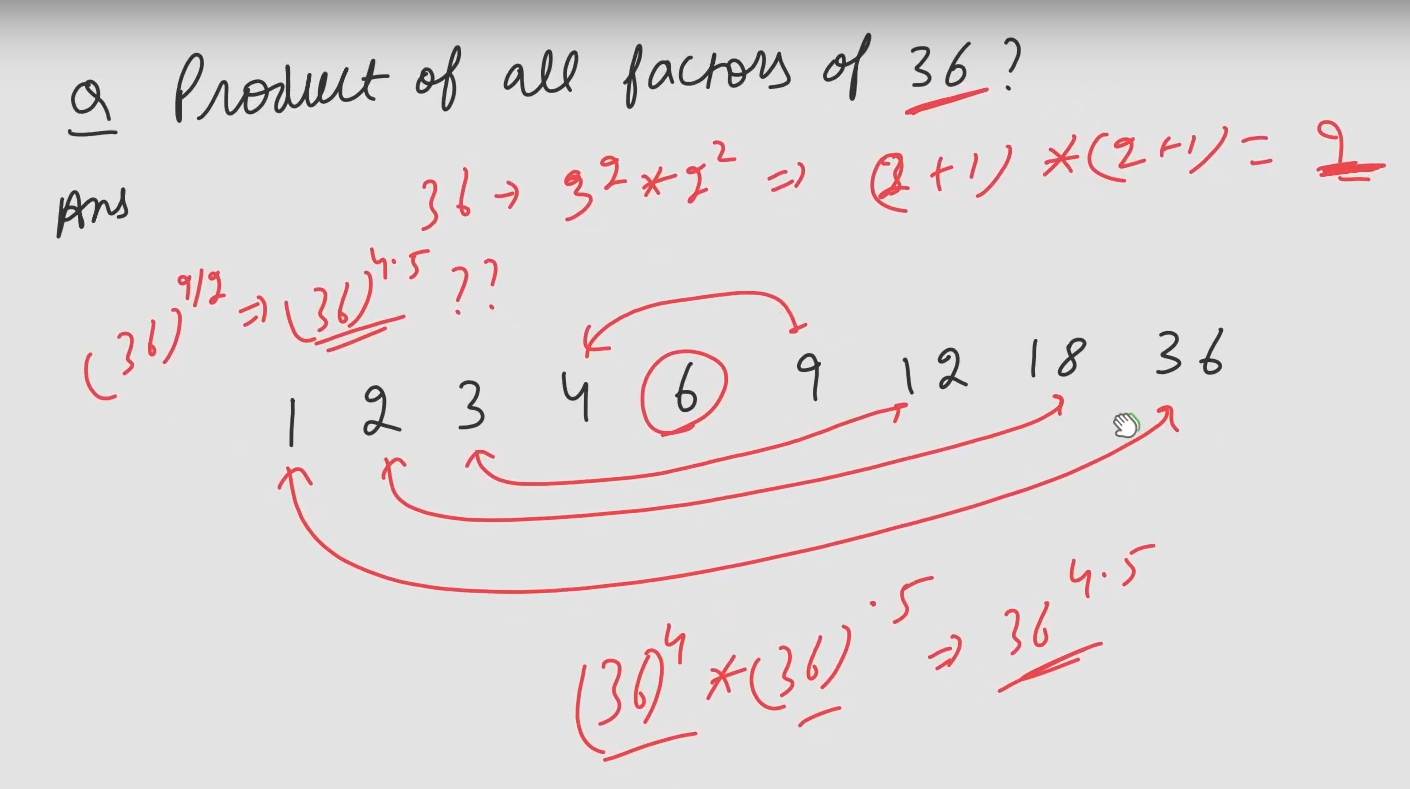 Q Product of all factors of 36?
Ans
36 → 3^2 * 2^2 ⇒ (2+1) * (2+1) = 9
(36)^9/2 ⇒ (36)^4.5 ??
1 2 3 4 6 9 12 18 36
(36)^4 * (36)^.5 ⇒ 36^4.5